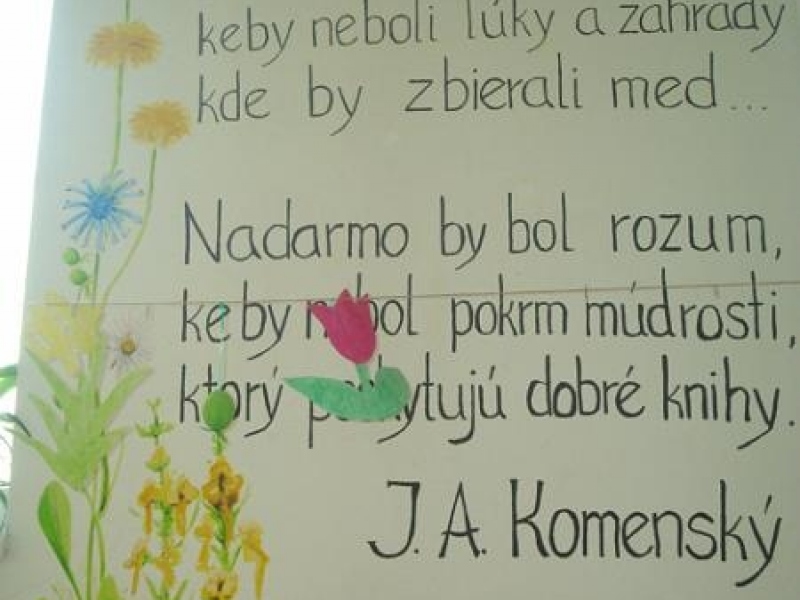 keby neboli lúky a záhrady
kde by zbierali med...
Nadarmo by bol rozum,
keby nebol pokrm múdrosti,
ktorý poskytujú dobré knihy.
J. A. Komenský